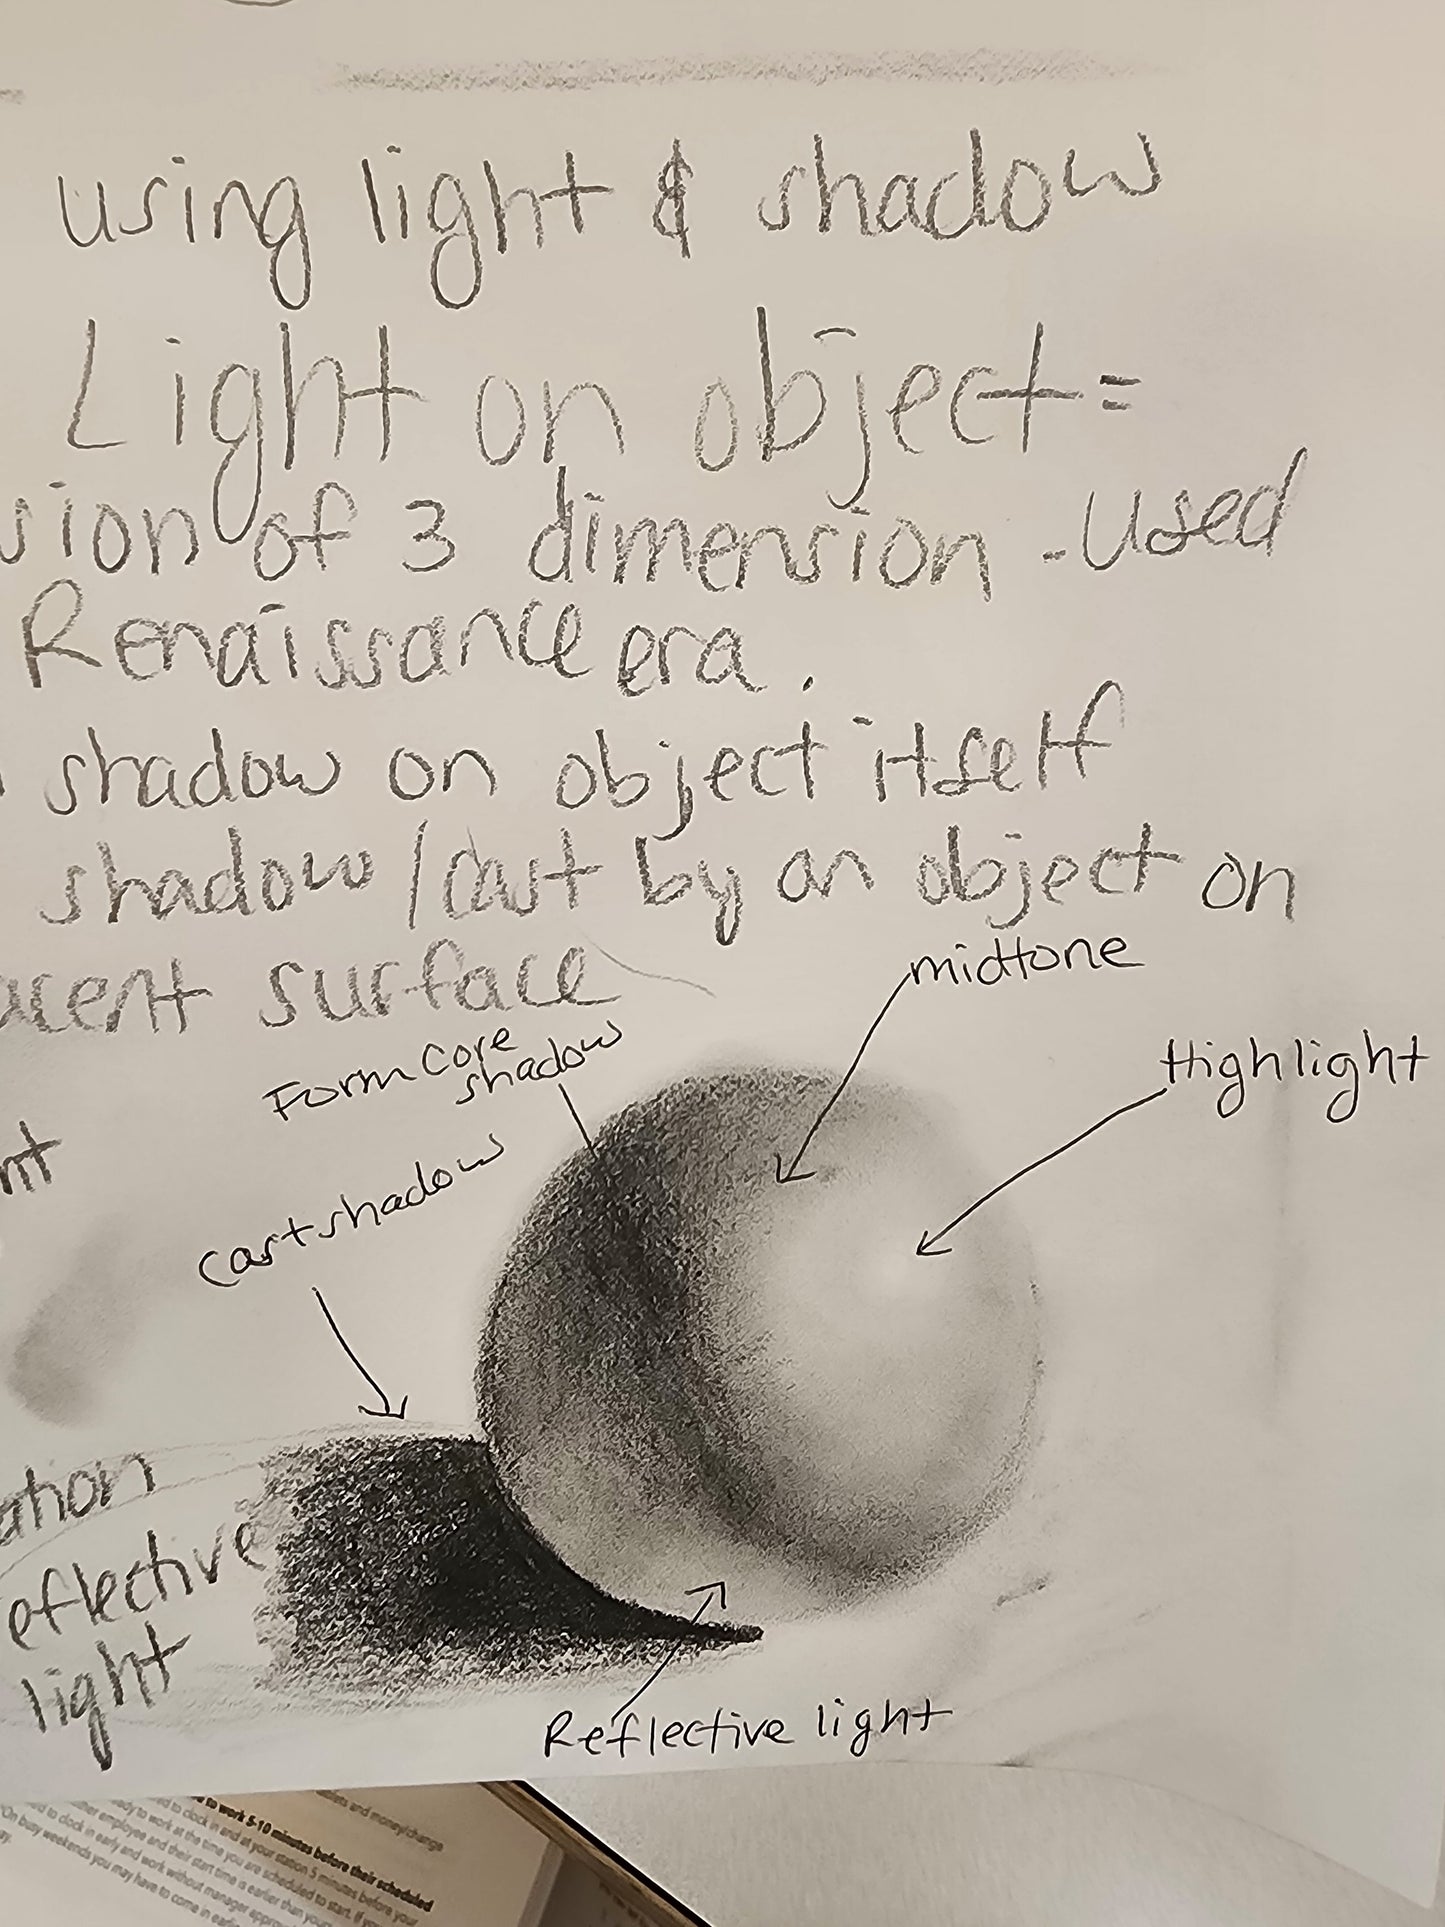 using light & shadow
Light on object =
sion of 3 dimension - used
Renaissance era.
shadow on object itself
shadow / cast by an object on
acent surface
midtone
Form Core
shadow
Highlight
nt
cast shadow
ation
eflective
light
Reflective light
to work 5-10 minutes before their scheduled
to clock in and at your station 5 minutes before your
ready to work at the time you are scheduled to start. If
other employee and their start time is earlier than
to clock in early and work without manager
"On busy weekends you may have to come in